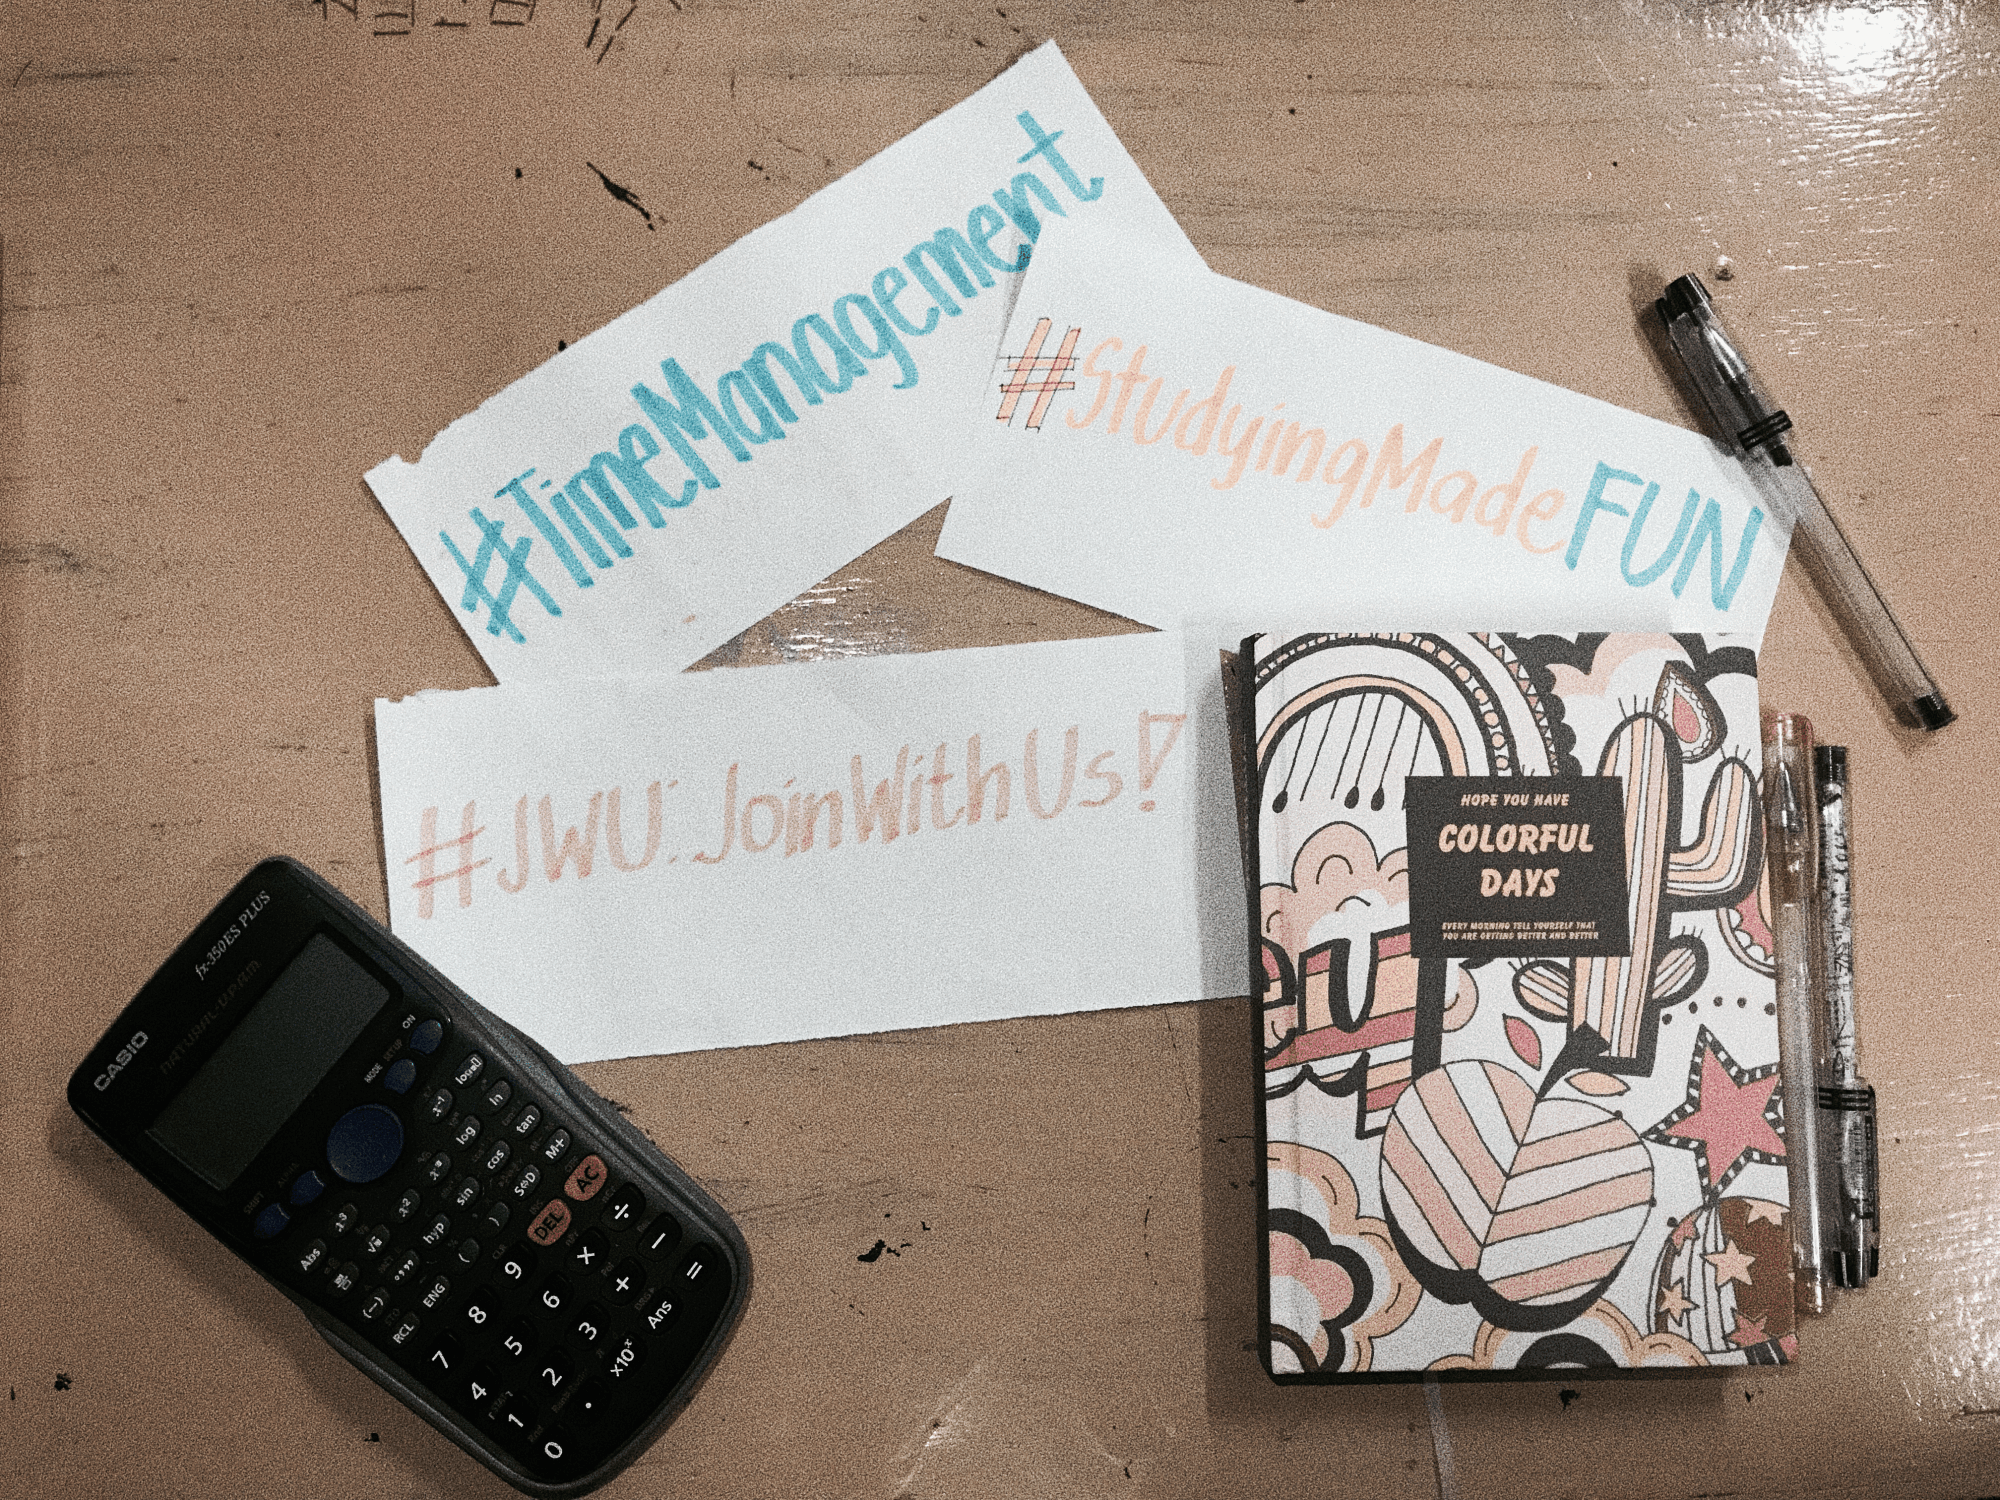 #TimeManagement
#StudyingMadeFUN
#JWU: JoinWithUs!
HOPE YOU HAVE
COLORFUL
DAYS
EVERY MORNING TELL YOURSELF THAT
YOU ARE GETTING BETTER AND BETTER
eu
CASIO
fx-350ES PLUS
NATURAL-V.P.A.M.
SHIFT ALPHA MODE SETUP ON
Abs x³ x⁻¹ log
√ x² log ln
(−) °,,, hyp sin cos tan
RCL ENG ( ) S⇔D M+
7 8 9 DEL AC
4 5 6 × ÷
1 2 3 + −
0 . ×10ˣ Ans =